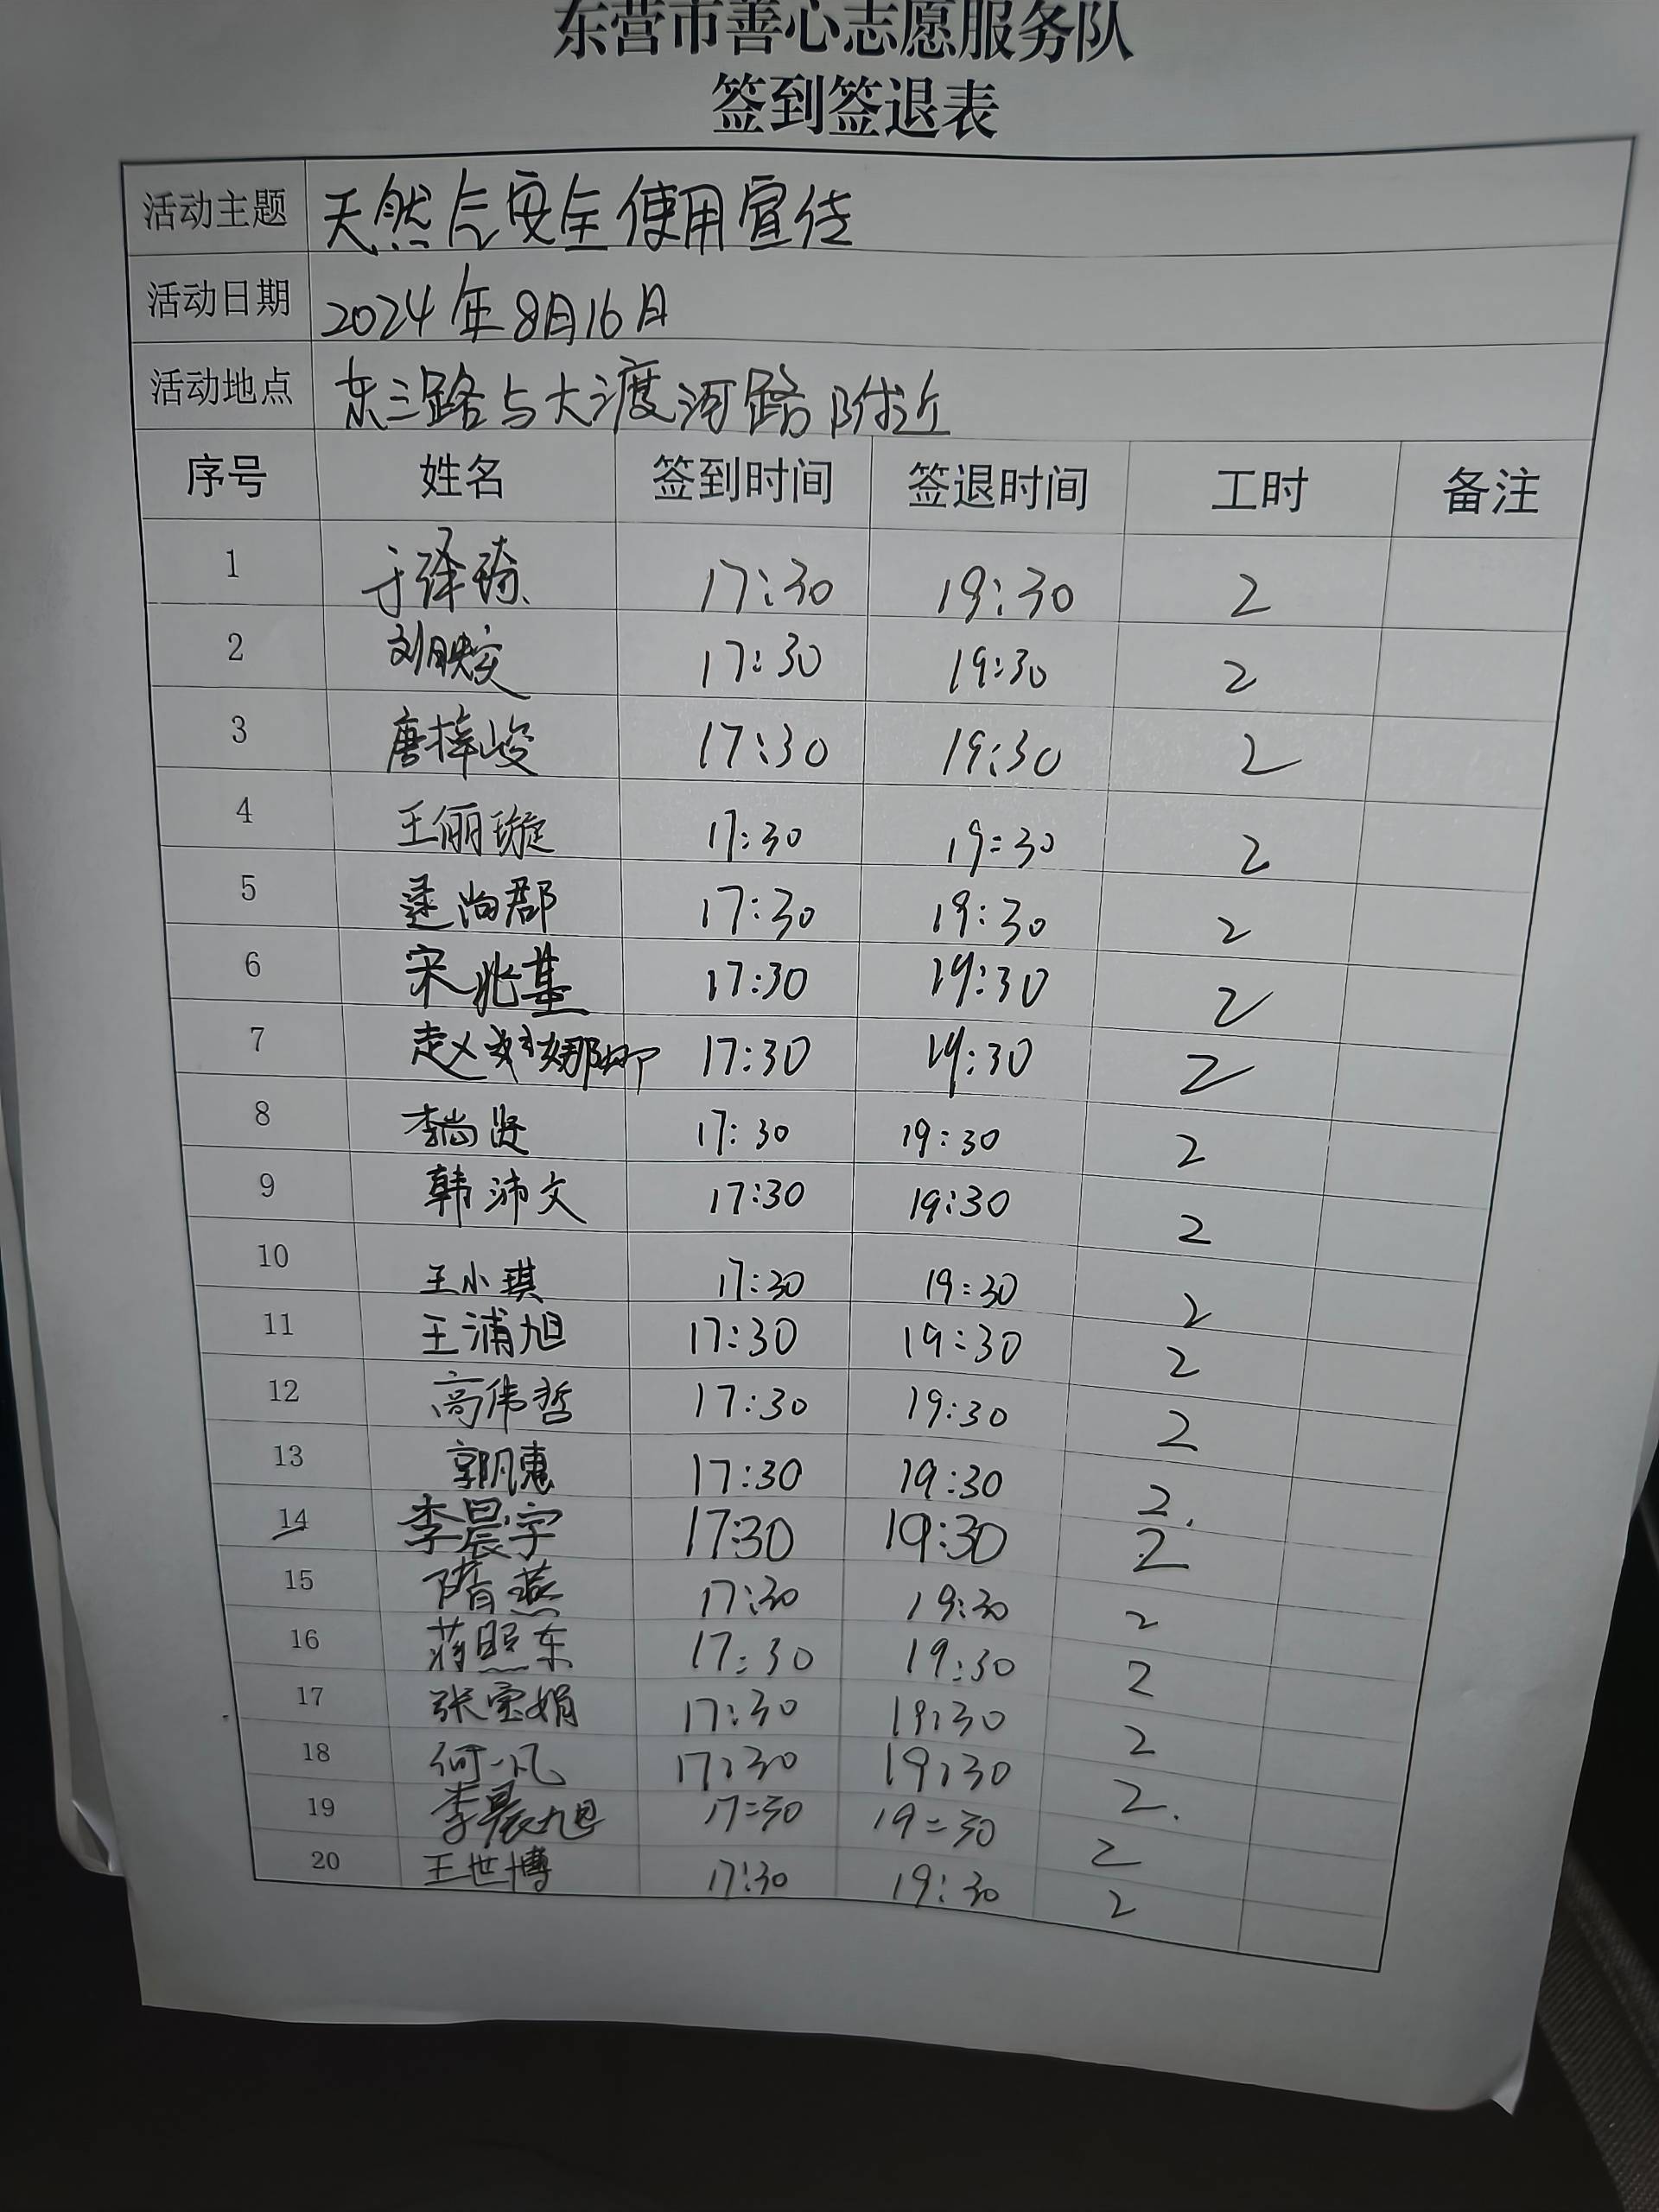 东营市善心志愿服务队
签到签退表
活动主题 天然气安全使用宣传
活动日期 2024年8月16日
活动地点 东三路与大渡河路附近
序号 姓名 签到时间 签退时间 工时 备注
1 于泽琦 17:30 19:30 2
2 刘映安 17:30 19:30 2
3 唐梓峻 17:30 19:30 2
4 王俪璇 17:30 19:30 2
5 逯尚郡 17:30 19:30 2
6 宋兆基 17:30 19:30 2
7 赵娜娜 17:30 19:30 2
8 李尚贤 17:30 19:30 2
9 韩沛文 17:30 19:30 2
10 王小琪 17:30 19:30 2
11 王浦旭 17:30 19:30 2
12 高伟哲 17:30 19:30 2
13 郭凡惠 17:30 19:30 2.
14 李晨宇 17:30 19:30 2
15 隋燕 17:30 19:30 2
16 蒋照东 17:30 19:30 2
17 张宝娟 17:30 19:30 2
18 何一凡 17:30 19:30 2.
19 李晨旭 17:30 19:30 2
20 王世博 17:30 19:30 2